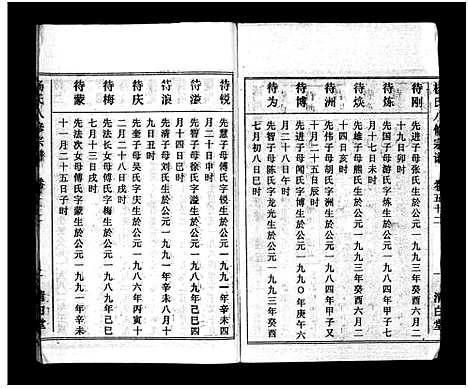 杨氏八修宗谱 卷五十二 清白堂
待刚
先进子母张氏字刚生於公元一九九三年癸酉六月二
十九日卯时
待炼
先国子母游氏字炼生於公元一九八四年甲子七
待焕
先雄子母熊氏生於公元一九九三年癸酉六月二
十四日亥时
待洲
先学子母胡氏字洲生於公元一九八四年甲子又
十月二十五日辰时
待博
先进子母闻氏字博生於公元一九九〇年庚午六
月二十八日午时
待为
先智子母陈氏字龙光生於公元一九九三年癸酉
七月初八日巳时
待锐
先慧子母傅氏字锐生於公元一九九一年辛未四
月二十日中时
待溢
先智子母徐氏字溢生於公元一九八九年己巳四
月十四日巳时
待浪
先清子母刘氏生於公元一九九一年辛未八月十
九日丑时
待庆
先奎子母吴氏字庆生於公元一九八六年丙寅十
二月二十八日戌时
待梅
先法子母傅氏字梅生於公元一九八九年己巳
七月十三日戌时
待蒙
先法次女母傅氏字蒙生於公元一九九一年辛未
十一月二十五日子时
杨氏八修宗谱 清白堂